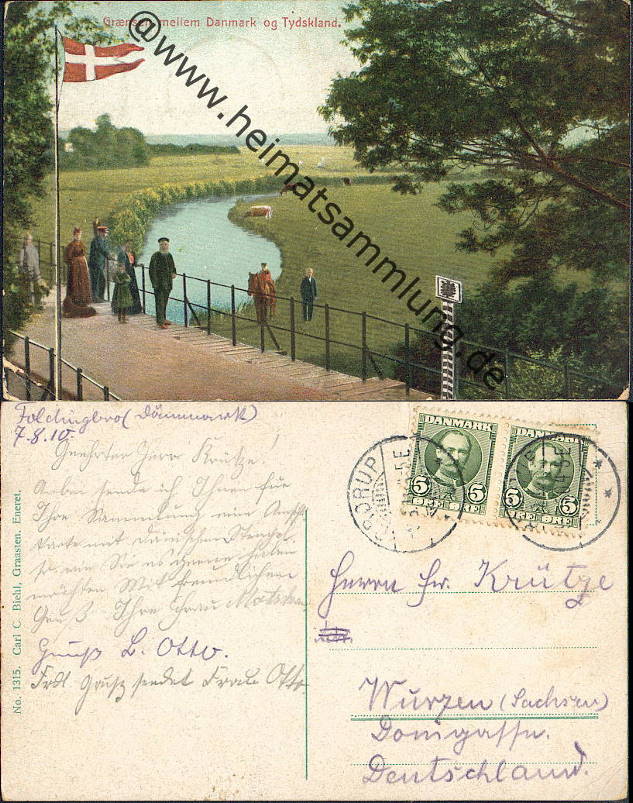 Grænsen mellem Danmark og Tydskland.
@www.heimatsammlung.de
Foldingbro (Dänemark)
7.8.10.
Geehrter Herr Krütze!
Anbei sende ich Ihnen für
Ihre Sammlung eine Ansichts
karte mit dänischem Stempel
so wie Sie es gerne haben
möchten. Mit freundlichem
Gruß Ihre Frau
Gruß L. Otto.
Frdl. Gruß sendet Frau Otto
No. 1315. Carl C. Biehl, Graasten. Eneret.
DANMARK
5 5
ØRE ØRE
DANMARK
5 5
ØRE ØRE
Herrn Fr. Krütze
Wurzen (Sachsen)
Domgasse.
Deutschland.